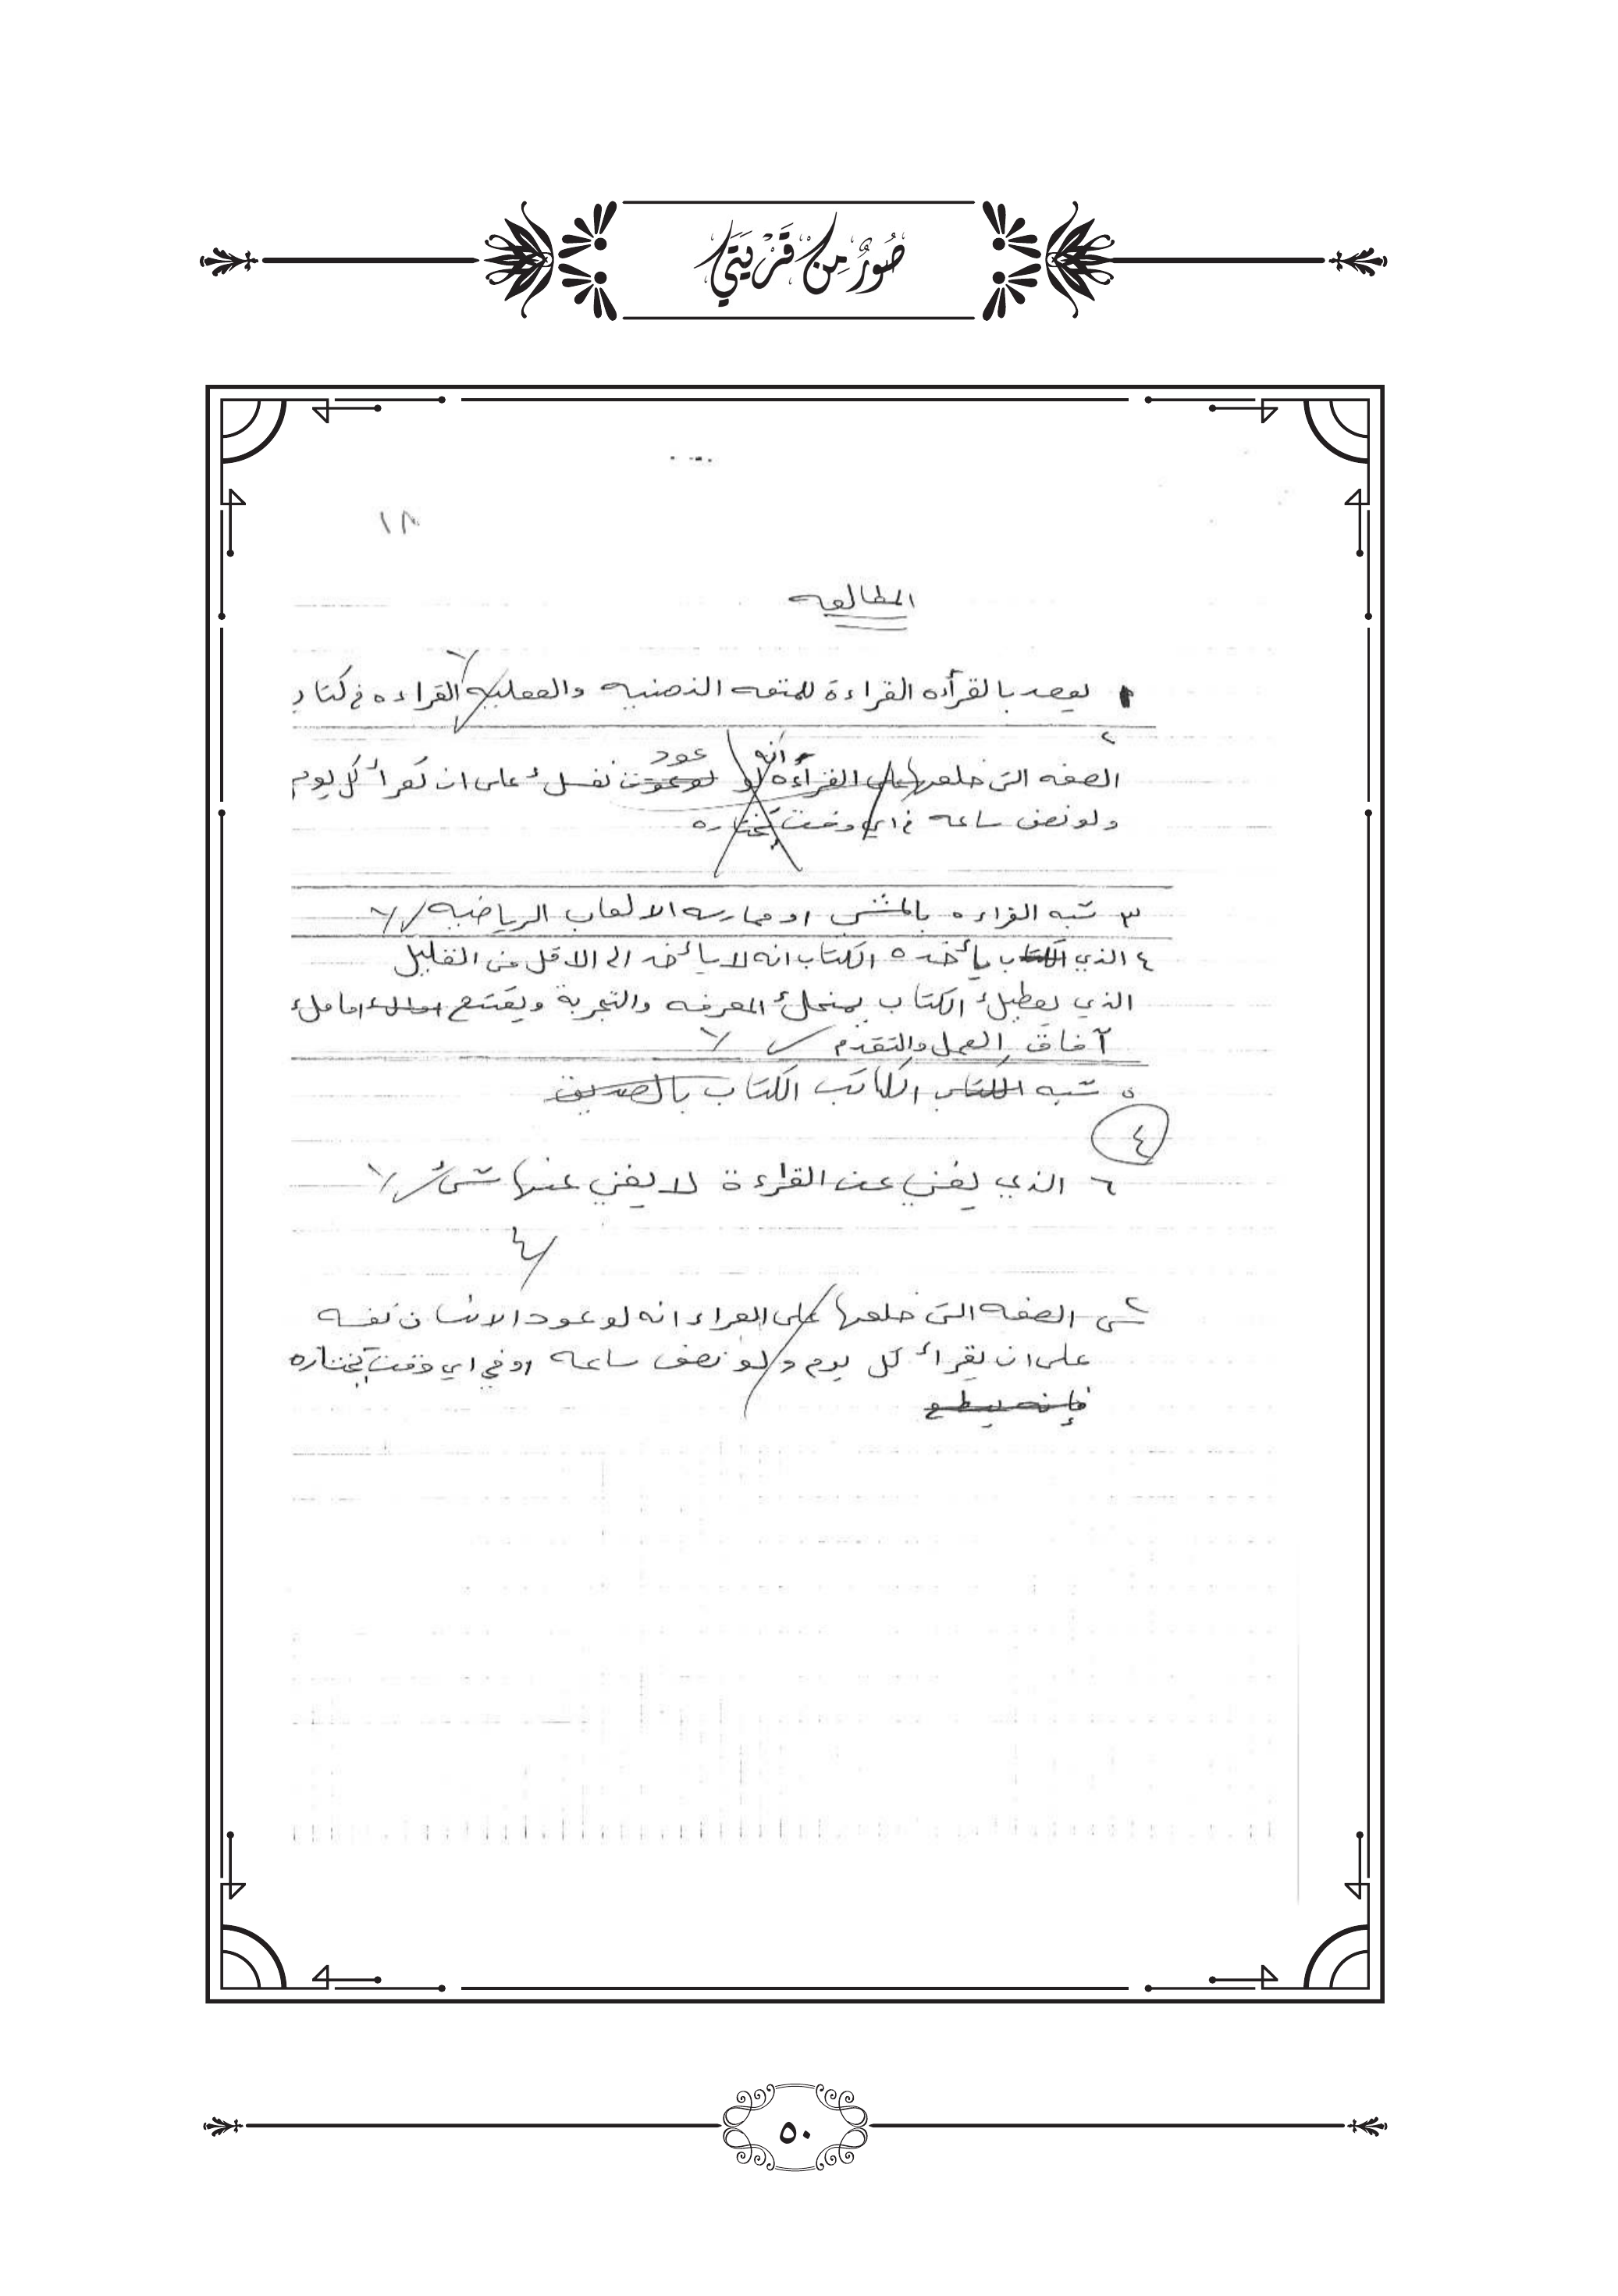 صُوَرٌ مِنْ قَرْيَتِي
١٨
المطالعه
١ يقصد بالقرأه القراءة للمتعه الذهنيه والعقليه القراءه في كتاب
٢
أنه عود
الصفه التى خلعها على القرأءه لو لو عودت نفسك على ان تقرأ كل يوم
ولو نصف ساعه في اي وقت يختاره
٣ شبه القراءه بالمشى او ممارسه الالعاب الرياضيه ٦
٤ الذي الكتاب يأخذه الكتاب انه لا يأخذ الى الاقل من القليل
الذي يعطيك الكتاب يمنحك المعرفه والتجربة ويفتح امامك
آفاق العمل والتقدم ٦
٥ شبه الكتاب الكاتب الكتاب بالصديق
٤
٦ الذي يغني عن القراءة لا يغني عنها شئ ٦
٤
س٢ الصفه التى خلعها على القراء انه لو عود الانسان نفسه
على ان يقراأ كل يوم ولو نصف ساعه او في اي وقت يختاره
فإنه يسطع
٥٠